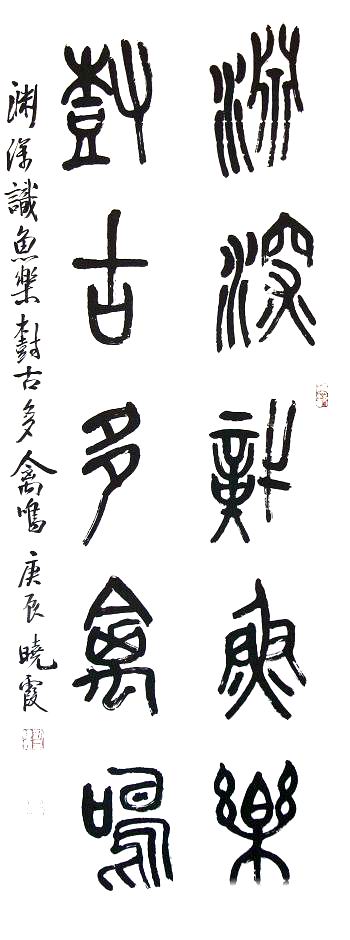 淵深識魚樂
樹古多禽鳴
淵深識魚樂樹古多禽鳴庚辰曉霞